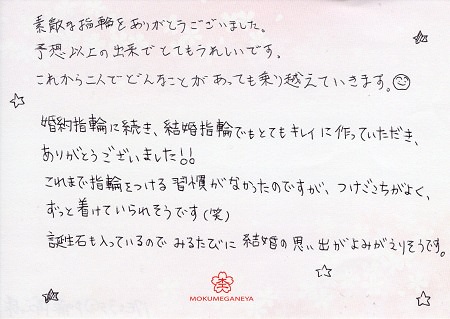 素敵な指輪をありがとうございました。
予想以上の出来でとてもうれしいです。
これから二人でどんなことがあっても乗り越えていきます。
婚約指輪に続き、結婚指輪でもとてもキレイに作っていただき、
ありがとうございました!!
これまで指輪をつける習慣がなかったのですが、つけごこちがよく、
ずっと着けていられそうです(笑)
誕生石も入っているのでみるたびに結婚の思い出がよみがえりそうです。
MOKUMEGANEYA